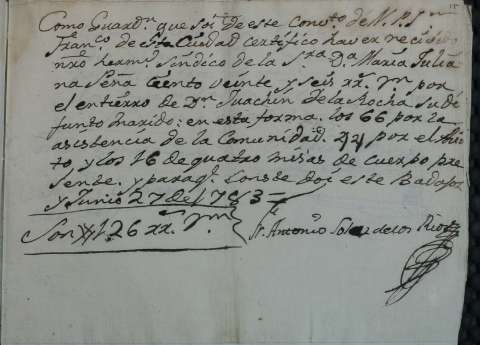 Como Guardn. que soi de este convto. de N. P. Sn.
Franco. de Sta. Ciudad certifico haver recivido
nro hermo. Sindico de la Sra. Da. Maria Julia
na Peña Ciento veinte y seis rs. Vn. por
el entierro de Dn. Juachin de la Rocha su di
funto marido: en esta forma. los 66 por la
asistencia de la Comunidad. 44 por el Avi
to y los 16 de quatro misas de cuerpo pre
sente. y paraqe. Conste doi este Badajoz
y Junio 27 de 1783
Son # 126 rs. Vn.
Fr. Antonio de los Rios